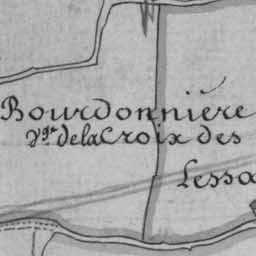 Bourdonnière
dela Croix des
Lessa